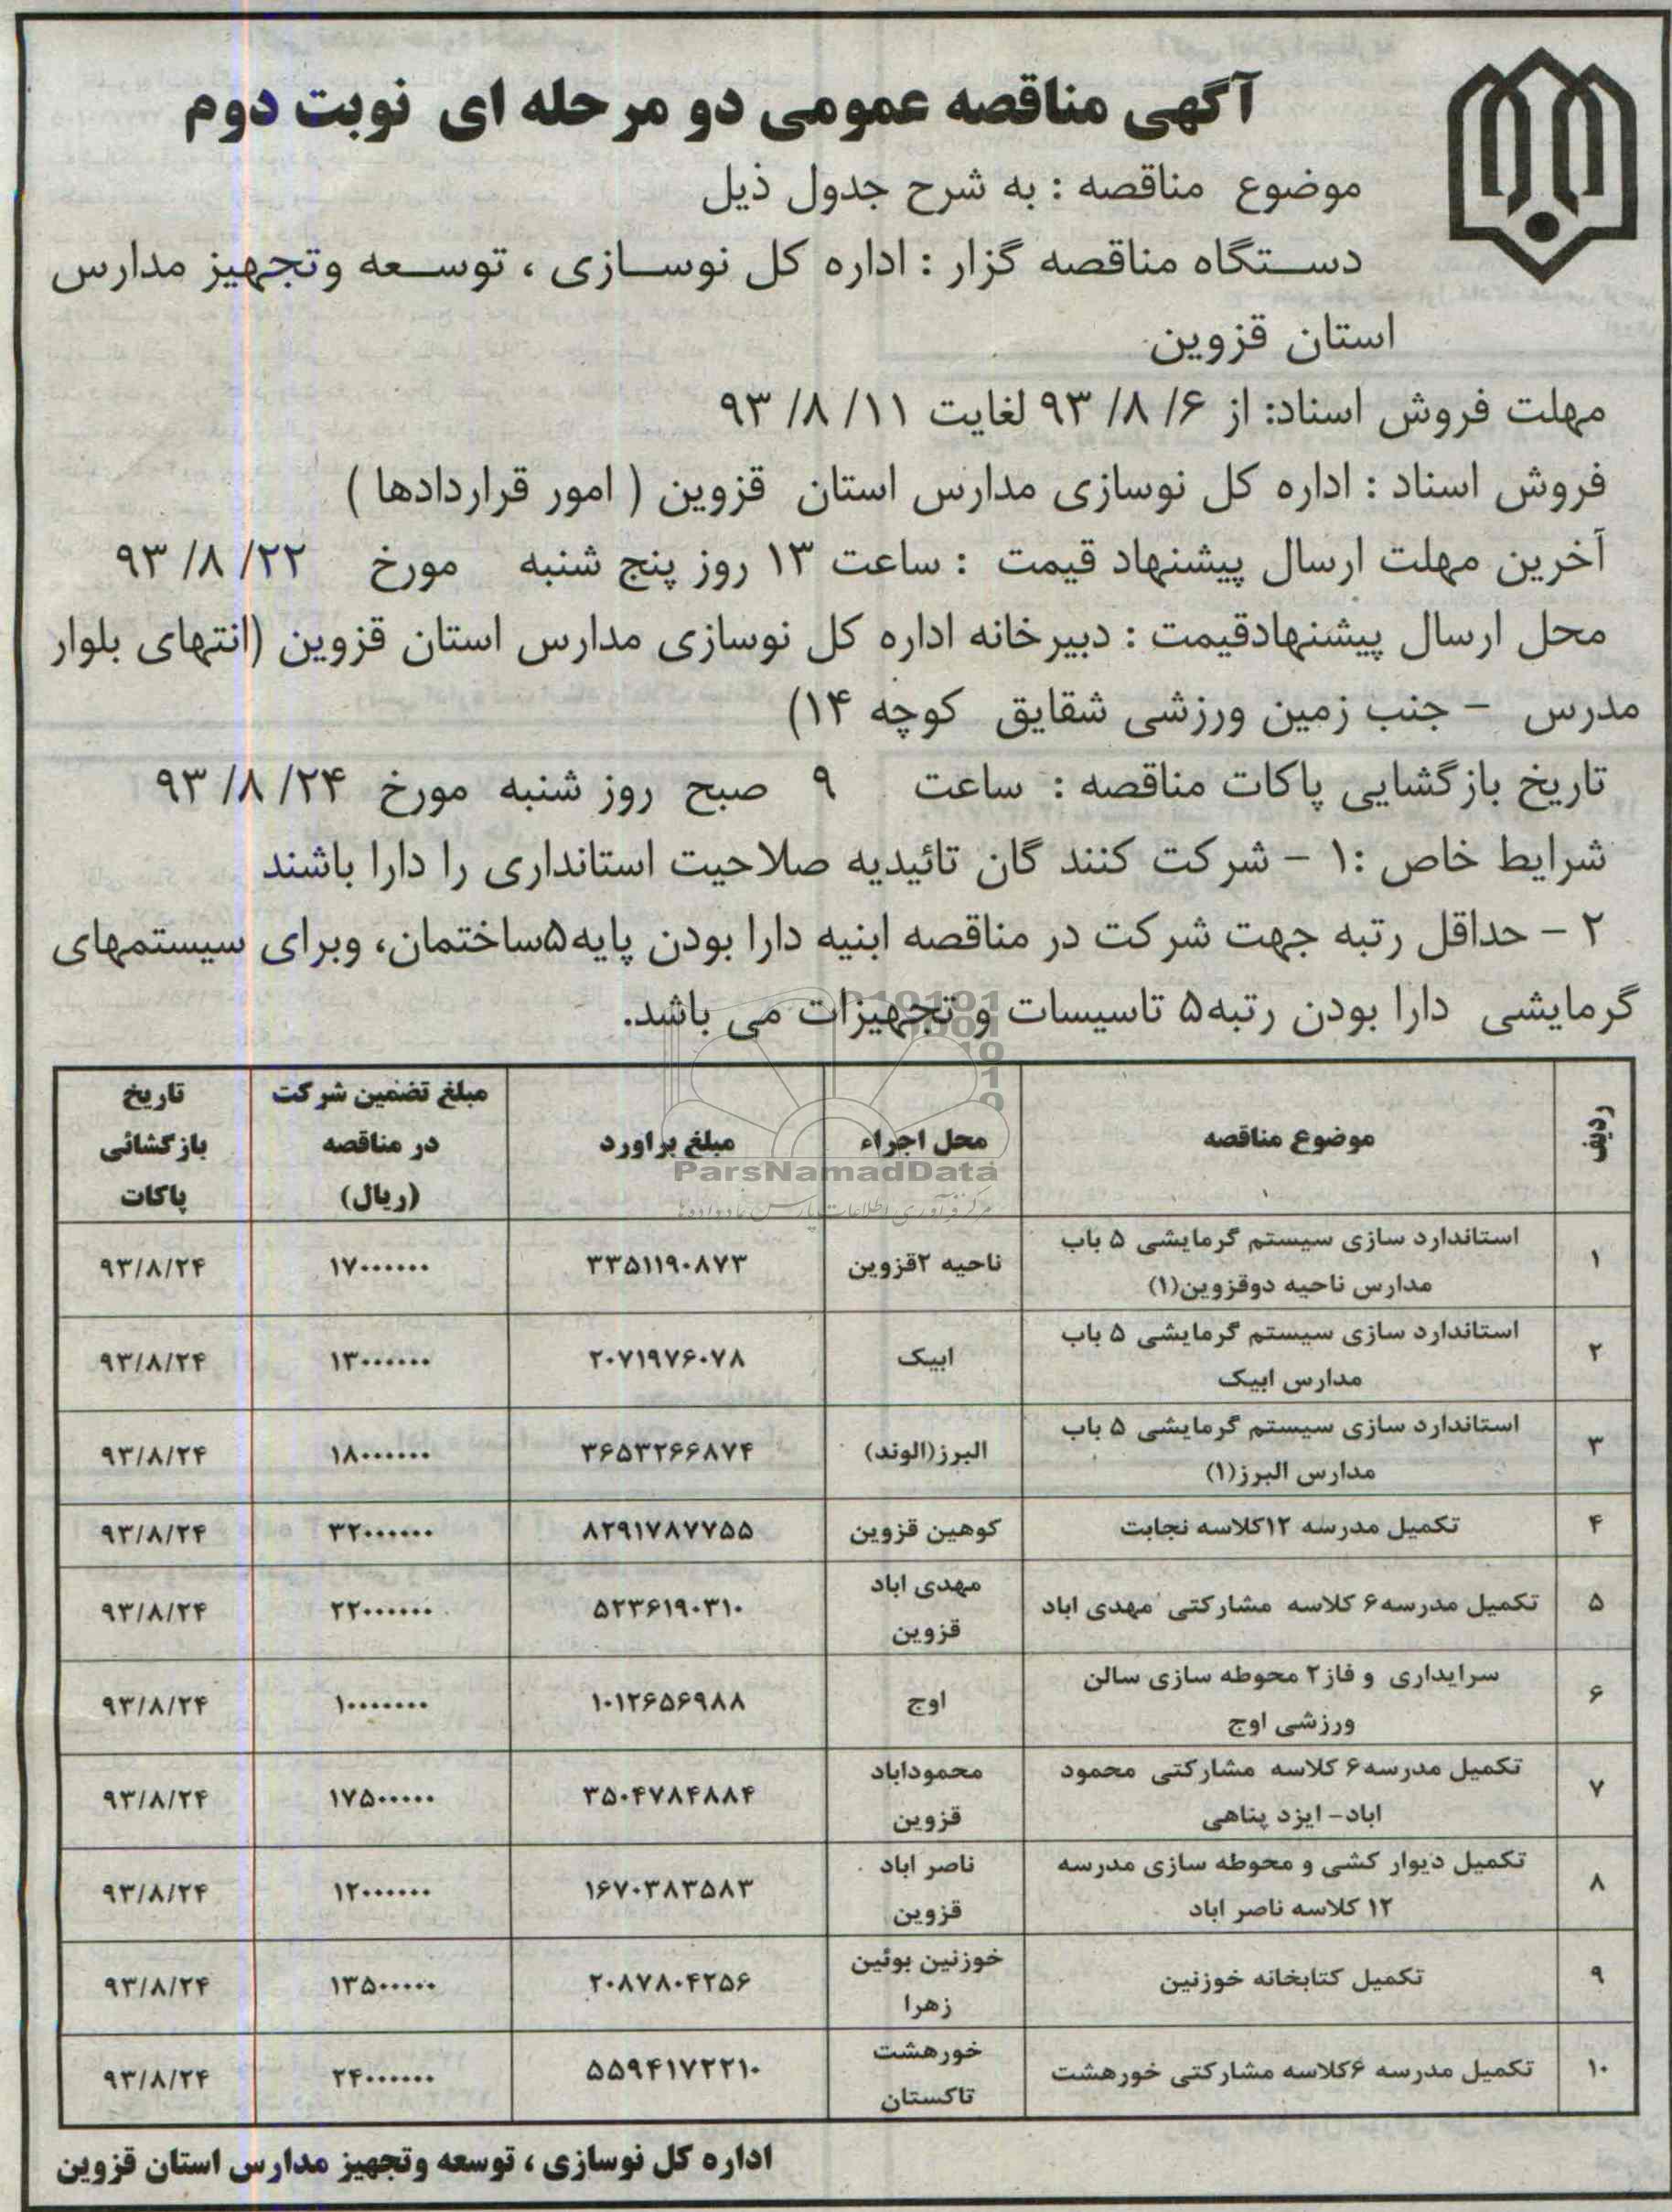 آگهی مناقصه عمومی دو مرحله ای نوبت دوم
موضوع مناقصه : به شرح جدول ذیل
دستگاه مناقصه گزار : اداره کل نوسازی ، توسعه وتجهیز مدارس
استان قزوین
مهلت فروش اسناد: از ۶/ ۸/ ۹۳ لغایت ۱۱/ ۸/ ۹۳
فروش اسناد : اداره کل نوسازی مدارس استان قزوین ( امور قراردادها )
آخرین مهلت ارسال پیشنهاد قیمت : ساعت ۱۳ روز پنج شنبه مورخ ۲۲/ ۸/ ۹۳
محل ارسال پیشنهادقیمت : دبیرخانه اداره کل نوسازی مدارس استان قزوین (انتهای بلوار
مدرس - جنب زمین ورزشی شقایق کوچه ۱۴)
تاریخ بازگشایی پاکات مناقصه : ساعت ۹ صبح روز شنبه مورخ ۲۴/ ۸/ ۹۳
شرایط خاص :۱ - شرکت کنند گان تائیدیه صلاحیت استانداری را دارا باشند
۲ - حداقل رتبه جهت شرکت در مناقصه ابنیه دارا بودن پایه۵ساختمان، وبرای سیستمهای
گرمایشی دارا بودن رتبه۵ تاسیسات و تجهیزات می باشد.
ردیف موضوع مناقصه محل اجراء مبلغ براورد مبلغ تضمین شرکت در مناقصه (ریال) تاریخ بازگشائی پاکات
۱ استاندارد سازی سیستم گرمایشی ۵ باب مدارس ناحیه دوقزوین(۱) ناحیه ۲قزوین ۳۳۵۱۱۹۰۸۷۳ ۱۷۰۰۰۰۰۰۰ ۹۳/۸/۲۴
۲ استاندارد سازی سیستم گرمایشی ۵ باب مدارس ابیک ابیک ۲۰۷۱۹۷۶۰۷۸ ۱۳۰۰۰۰۰۰۰ ۹۳/۸/۲۴
۳ استاندارد سازی سیستم گرمایشی ۵ باب مدارس البرز(۱) البرز(الوند) ۳۶۵۳۲۶۶۸۷۴ ۱۸۰۰۰۰۰۰۰ ۹۳/۸/۲۴
۴ تکمیل مدرسه ۱۲کلاسه نجابت کوهین قزوین ۸۲۹۱۷۸۷۷۵۵ ۳۲۰۰۰۰۰۰۰ ۹۳/۸/۲۴
۵ تکمیل مدرسه۶ کلاسه مشارکتی مهدی اباد مهدی اباد قزوین ۵۲۳۶۱۹۰۳۱۰ ۲۲۰۰۰۰۰۰۰ ۹۳/۸/۲۴
۶ سرایداری و فاز۲ محوطه سازی سالن ورزشی اوج اوج ۱۰۱۲۶۵۶۹۸۸ ۱۰۰۰۰۰۰۰۰ ۹۳/۸/۲۴
۷ تکمیل مدرسه۶ کلاسه مشارکتی محمود اباد- ایزد پناهی محموداباد قزوین ۳۵۰۴۷۸۴۸۸۴ ۱۷۵۰۰۰۰۰۰ ۹۳/۸/۲۴
۸ تکمیل دیوار کشی و محوطه سازی مدرسه ۱۲ کلاسه ناصر اباد ناصر اباد قزوین ۱۶۷۰۳۸۳۵۸۳ ۱۲۰۰۰۰۰۰۰ ۹۳/۸/۲۴
۹ تکمیل کتابخانه خوزنین خوزنین بوئین زهرا ۲۰۸۷۸۰۴۲۵۶ ۱۳۵۰۰۰۰۰۰ ۹۳/۸/۲۴
۱۰ تکمیل مدرسه ۶کلاسه مشارکتی خورهشت خورهشت تاکستان ۵۵۹۴۱۷۲۲۱۰ ۲۴۰۰۰۰۰۰۰ ۹۳/۸/۲۴
ParsNamadData
مرکز فرآوری اطلاعات پارس نماد داده‌ها
اداره کل نوسازی ، توسعه وتجهیز مدارس استان قزوین